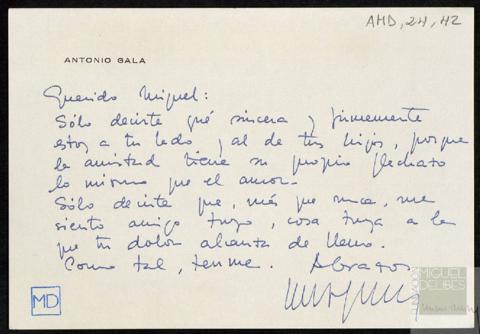 AMD, 24, 42
ANTONIO GALA
Querido Miguel:
Sólo decirte qué sincera y firmemente
estoy a tu lado, y al de tus hijos, porque
la amistad tiene su propio flechazo
lo mismo que el amor.
Sólo decirte que, más que nunca, me
siento amigo tuyo, cosa tuya a la
que tu dolor alcanza de lleno.
Como tal, tenme. Abrazos
MD
FUNDACIÓN
MIGUEL
DELIBES